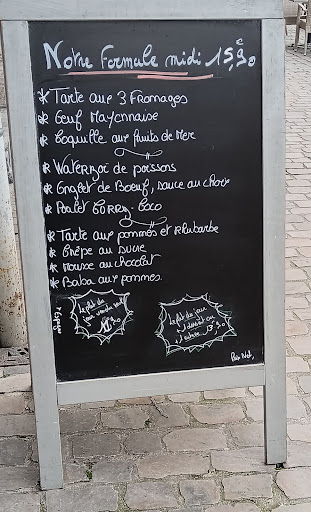 Notre Formule midi 15,90 €
* Tarte aux 3 Fromages
* Oeuf Mayonnaise
* Coquille aux fruits de Mer
* Waterzoï de poissons
* Onglet de Boeuf, sauce au choix
* Poulet Curry-Coco
* Tarte aux pommes et rhubarbe
* Crêpe au sucre
* Mousse au chocolat
* Baba aux pommes
Le plat du
jour
11,90
Le plat du jour
+ dessert ou
entrée 13,90